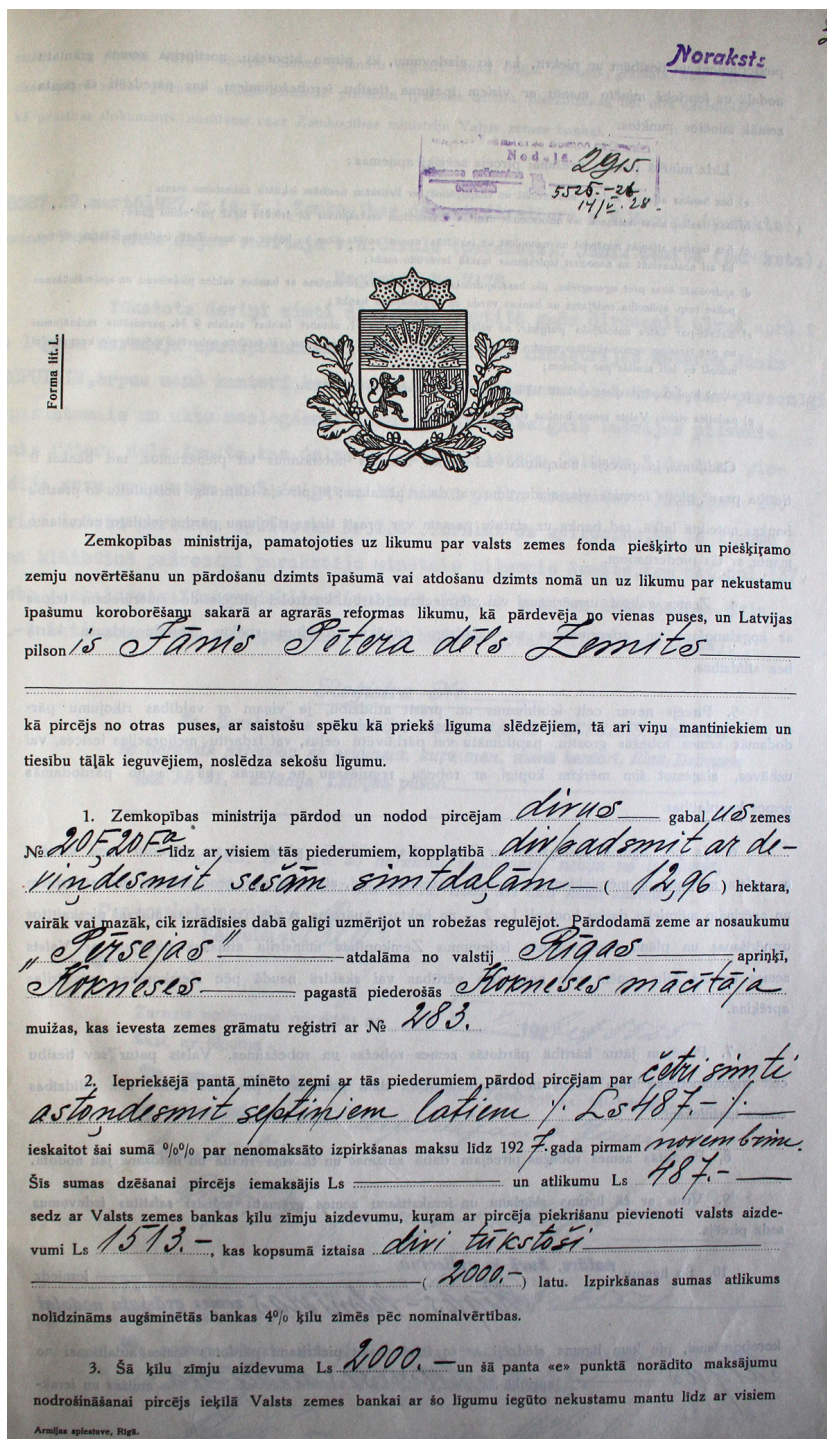 Noraksts
Nodaļā
2915.
5525.-26
14/I.-28.
Forma lit. L.
Zemkopības ministrija, pamatojoties uz likumu par valsts zemes fonda piešķirto un piešķiŗamo
zemju novērtēšanu un pārdošanu dzimts īpašumā vai atdošanu dzimts nomā un uz likumu par nekustamu
īpašumu koroborēšanu sakarā ar agrarās reformas likumu, kā pārdevēja no vienas puses, un Latvijas
pilson is Jānis Pētera dēls Zemits
kā pircējs no otras puses, ar saistošu spēku kā priekš līguma slēdzējiem, tā ari viņu mantiniekiem un
tiesību tāļāk ieguvējiem, noslēdza sekošu līgumu.
1. Zemkopības ministrija pārdod un nodod pircējam divus gabal us zemes
№ 20F, 20Fa līdz ar visiem tās piederumiem, kopplatībā divpadsmit ar de-
viņdesmit sešām simtdaļām — ( 12,96 ) hektara,
vairāk vai mazāk, cik izrādīsies dabā galīgi uzmērijot un robežas regulējot. Pārdodamā zeme ar nosaukumu
„Pērsejas" atdalāma no valstij Rīgas apriņķī,
Kokneses pagastā piederošās Kokneses mācītāja
muižas, kas ievesta zemes grāmatu reģistrī ar № 283.
2. Iepriekšējā pantā minēto zemi ar tās piederumiem pārdod pircējam par četri simti
astoņdesmit septiņiem latiem /. Ls 487.- /.
ieskaitot šai sumā %% par nenomaksāto izpirkšanas maksu līdz 192 7. gada pirmam novembrim.
Šīs sumas dzēšanai pircējs iemaksājis Ls — un atlikumu Ls 487.-
sedz ar Valsts zemes bankas ķīlu zīmju aizdevumu, kuŗam ar pircēja piekrišanu pievienoti valsts aizde-
vumi Ls 1513.-, kas kopsumā iztaisa divi tūkstoši
( 2000.- ) latu. Izpirkšanas sumas atlikums
nolīdzināms augšminētās bankas 4% ķīlu zīmēs pēc nominalvērtības.
3. Šā ķīlu zīmju aizdevuma Ls 2000.— un šā panta «e» punktā norādīto maksājumu
nodrošināšanai pircējs ieķīlā Valsts zemes bankai ar šo līgumu iegūto nekustamu mantu līdz ar visiem
Armijas spiestuve, Rīgā.